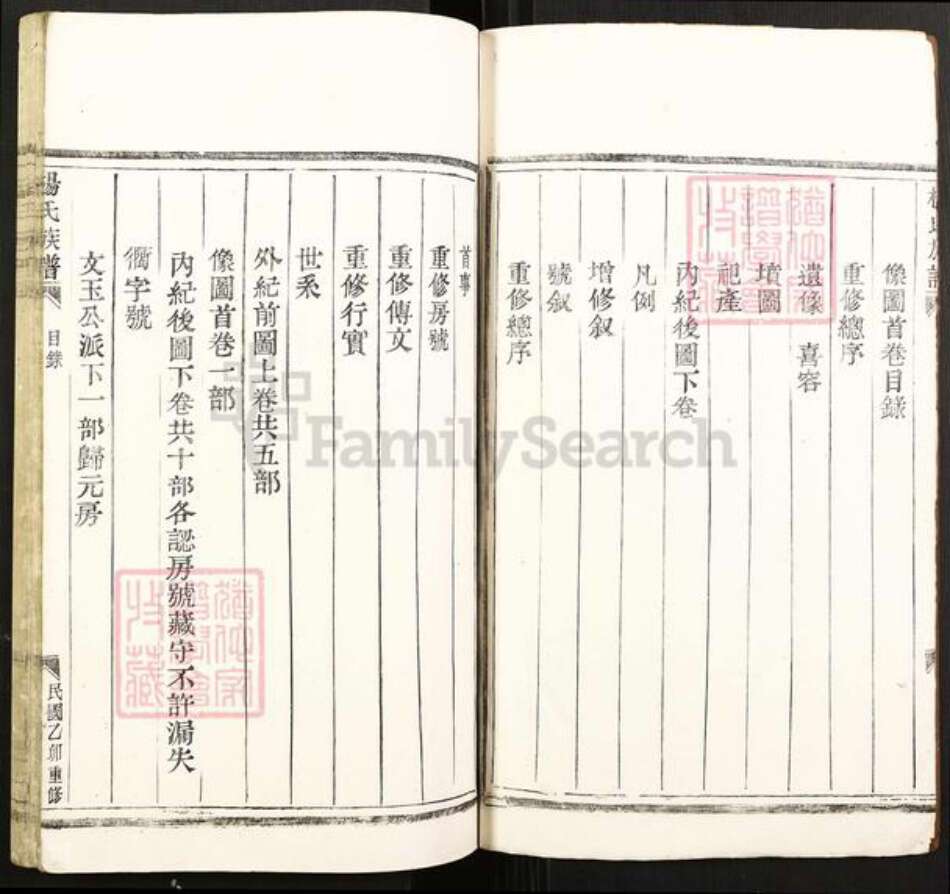 像圖首卷目錄
重修總序
遺像 喜容
墳圖
祀產
內紀後圖下卷
凡例
增修叙
號叙
重修總序
首事
重修房號
重修傳文
重修行實
世系
外紀前圖上卷共五部
像圖首卷一部
內紀後圖下卷共十部各認房號藏守不許漏失
衙字號
文玉公派下一部歸元房
楊氏族譜 目錄 民國乙卯重修
FamilySearch